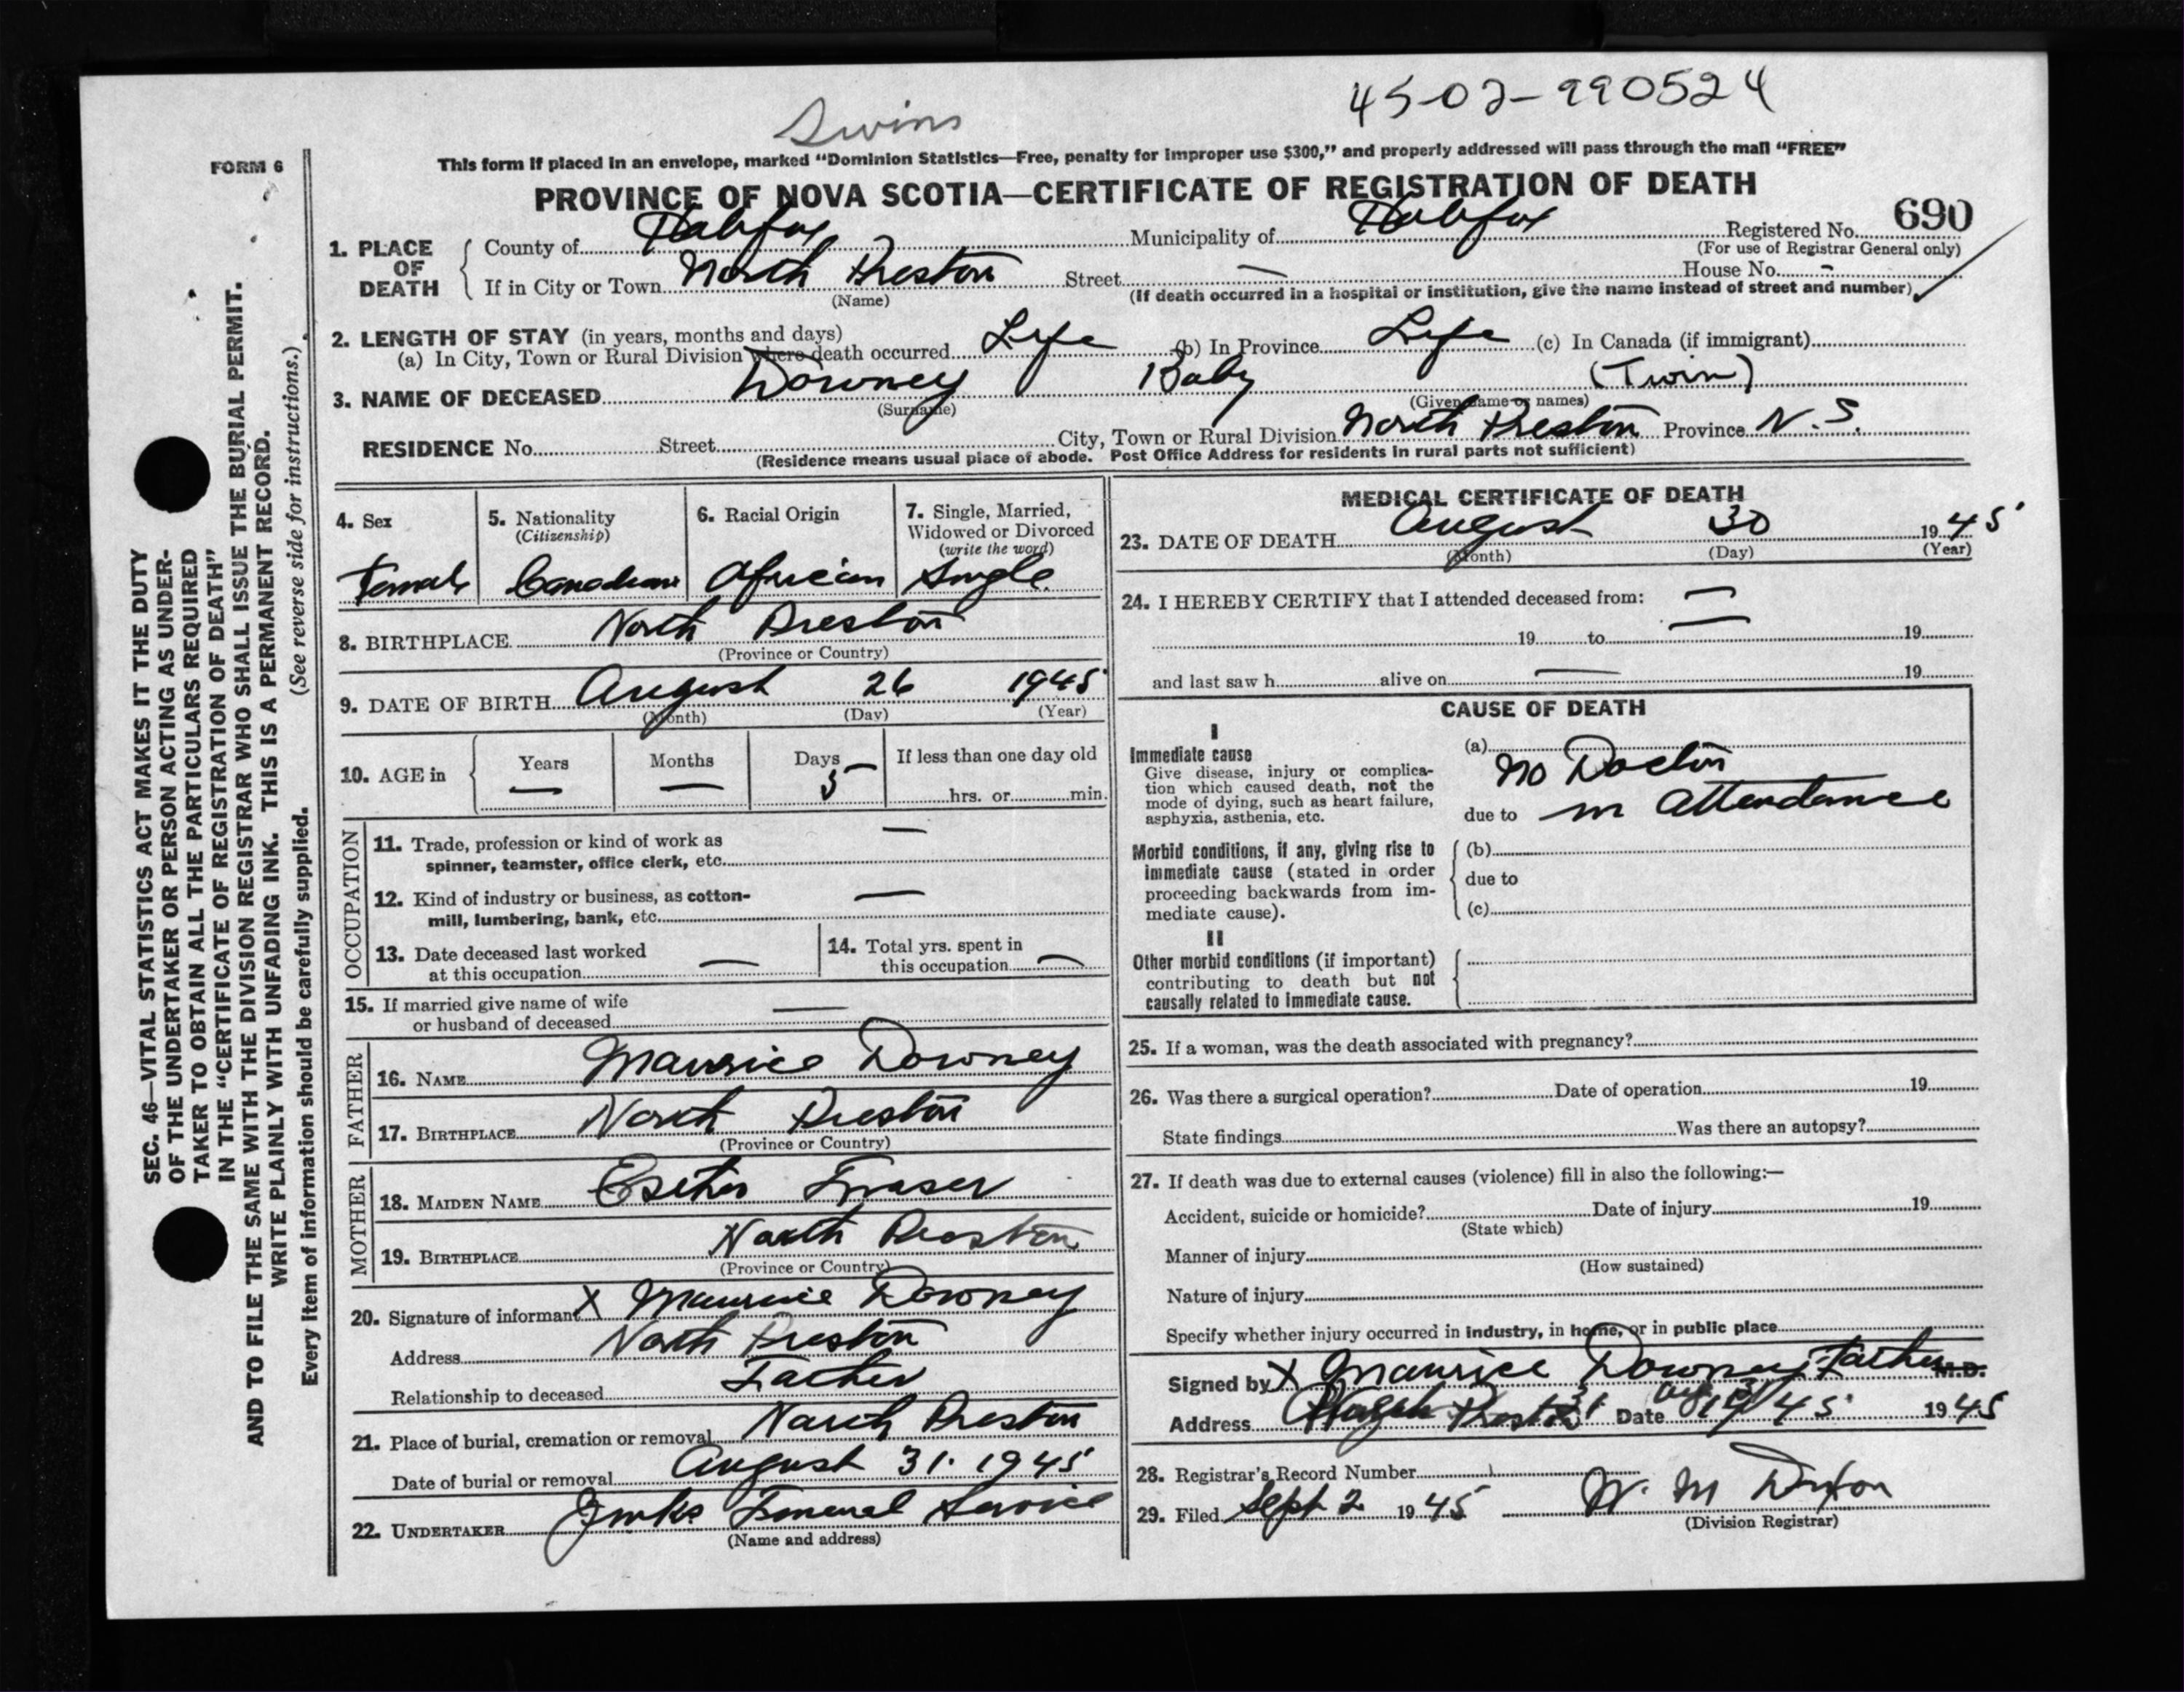 45-02-990524
Twins
FORM 6
This form if placed in an envelope, marked “Dominion Statistics—Free, penalty for improper use $300,” and properly addressed will pass through the mail “FREE”
PROVINCE OF NOVA SCOTIA—CERTIFICATE OF REGISTRATION OF DEATH
1. PLACE OF DEATH
County of Halifax Municipality of Halifax Registered No. 690
(For use of Registrar General only)
If in City or Town North Preston Street — House No. -
(Name) (If death occurred in a hospital or institution, give the name instead of street and number)
2. LENGTH OF STAY (in years, months and days)
(a) In City, Town or Rural Division where death occurred Life (b) In Province Life (c) In Canada (if immigrant)
3. NAME OF DECEASED Downey Baby (Twin)
(Surname) (Given name or names)
RESIDENCE No. Street City, Town or Rural Division North Preston Province N.S.
(Residence means usual place of abode. Post Office Address for residents in rural parts not sufficient)
SEC. 46—VITAL STATISTICS ACT MAKES IT THE DUTY
OF THE UNDERTAKER OR PERSON ACTING AS UNDER-
TAKER TO OBTAIN ALL THE PARTICULARS REQUIRED
IN THE “CERTIFICATE OF REGISTRATION OF DEATH”
AND TO FILE THE SAME WITH THE DIVISION REGISTRAR WHO SHALL ISSUE THE BURIAL PERMIT.
WRITE PLAINLY WITH UNFADING INK. THIS IS A PERMANENT RECORD.
Every item of information should be carefully supplied. (See reverse side for instructions.)
4. Sex 5. Nationality (Citizenship) 6. Racial Origin 7. Single, Married, Widowed or Divorced (write the word)
Female Canadian African Single
8. BIRTHPLACE North Preston
(Province or Country)
9. DATE OF BIRTH August 26 1945
(Month) (Day) (Year)
10. AGE in Years — Months — Days 5 If less than one day old
hrs. or min.
OCCUPATION
11. Trade, profession or kind of work as —
spinner, teamster, office clerk, etc.
12. Kind of industry or business, as cotton- —
mill, lumbering, bank, etc.
13. Date deceased last worked at this occupation — 14. Total yrs. spent in this occupation —
15. If married give name of wife —
or husband of deceased
FATHER
16. NAME Maurice Downey
17. BIRTHPLACE North Preston
(Province or Country)
MOTHER
18. MAIDEN NAME Esther Fraser
19. BIRTHPLACE North Preston
(Province or Country)
20. Signature of informant X Maurice Downey
Address North Preston
Relationship to deceased Father
21. Place of burial, cremation or removal North Preston
Date of burial or removal August 31. 1945
22. UNDERTAKER Funeral Service
(Name and address)
MEDICAL CERTIFICATE OF DEATH
23. DATE OF DEATH August 30 1945
(Month) (Day) (Year)
24. I HEREBY CERTIFY that I attended deceased from: —
19 to — 19
and last saw h alive on — 19
CAUSE OF DEATH
I
Immediate cause (a) No Doctor
Give disease, injury or complica-
tion which caused death, not the
mode of dying, such as heart failure,
asphyxia, asthenia, etc. due to in attendance
Morbid conditions, if any, giving rise to (b)
immediate cause (stated in order due to
proceeding backwards from im-
mediate cause). (c)
II
Other morbid conditions (if important)
contributing to death but not
causally related to immediate cause.
25. If a woman, was the death associated with pregnancy?
26. Was there a surgical operation? Date of operation 19
State findings Was there an autopsy?
27. If death was due to external causes (violence) fill in also the following:—
Accident, suicide or homicide? Date of injury 19
(State which)
Manner of injury
(How sustained)
Nature of injury
Specify whether injury occurred in industry, in home, or in public place
Signed by X Maurice Downey Father M.D.
Address Preston Date 1945
28. Registrar's Record Number
29. Filed Sept 2 1945 W. M
(Division Registrar)